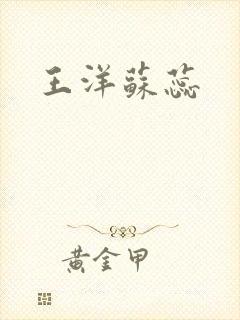 王洋蘇蕊
黃金甲